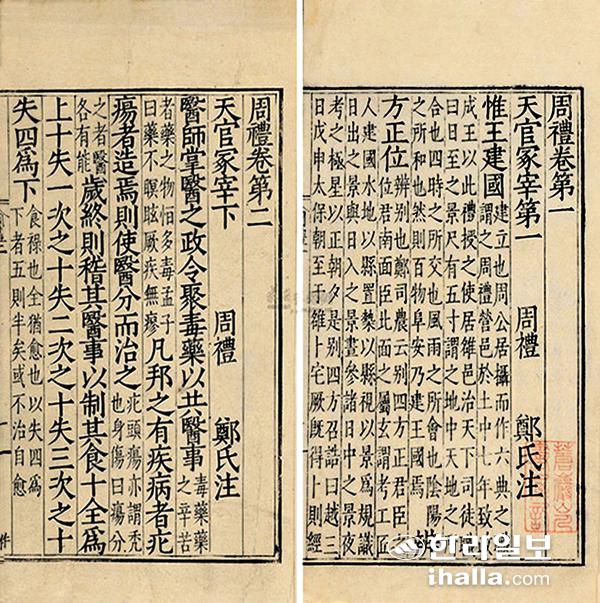 周禮卷第一
天官冢宰第一 周禮 鄭氏注
惟王建國 建立也周公居攝而作六典之
謂之周禮營邑於土中七年致
成王以此禮授之使居雒邑治天下司徒
曰日至之景尺有五寸謂之地中天地之
合也四時之所交也風雨之所會也陰陽
之所和也然則百物阜安乃建王國焉
方正位 辨別也鄭司農云別四方正君臣之
位君南面臣北面之屬玄謂考工匠
人建國水地以縣置槷以縣視以景為規識
日出之景與日入之景晝參諸日中之景夜
考之極星以正朝夕是別四方召誥曰越三
日戊申太保朝至于雒卜宅厥既得卜則經
周禮卷第二
天官冢宰下 周禮 鄭氏注
醫師掌醫之政令聚毒藥以共醫事 毒藥藥
之辛苦
者藥之物恒多毒孟子
曰藥不瞑眩厥疾無瘳 凡邦之有疾病者疕
瘍者造焉則使醫分而治之 疕頭瘍亦謂禿
也身傷曰瘍分
之者醫
各有能 歲終則稽其醫事以制其食十全為
上十失一次之十失二次之十失三次之十
失四為下 食祿也全猶愈也以失四為
下者五則半矣或不治自愈
한라일보
ihalla.com